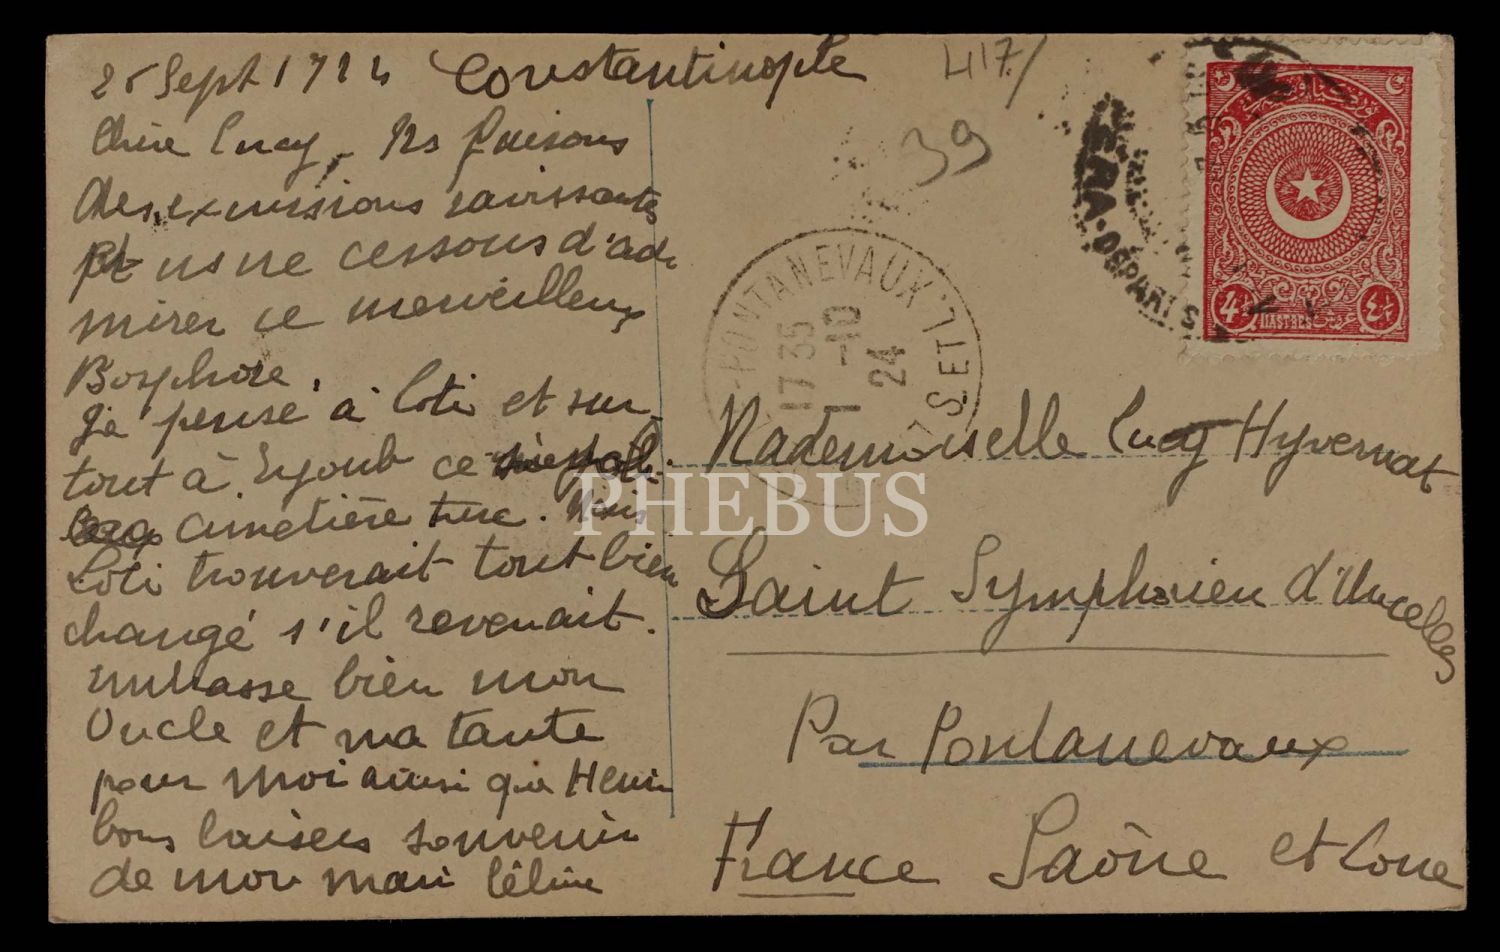 25 Sept 1924 Constantinople
Chère Lucy, Ns faisons
des excursions ravissantes
et ns ne cessons d'ad-
mirer ce merveilleux
Bosphore.
Je pense à Loti et sur-
tout à Eyoub ce
cimetière turc. Mais
Loti trouverait tout bien
changé s'il revenait.
embrasse bien mon
Oncle et ma tante
pour moi ainsi que Henri
bons baisers souvenir
de mon mari Céline
417/
39
PERA·DEPART S
PONTANEVAUX
17 35
1 -10
24
S. ET L.
4½ PIASTRES ٤½ غروش
Mademoiselle Lucy Hyvernat
Saint Symphorien d'Ancelles
Par Pontanevaux
France Saône et Loire
PHEBUS